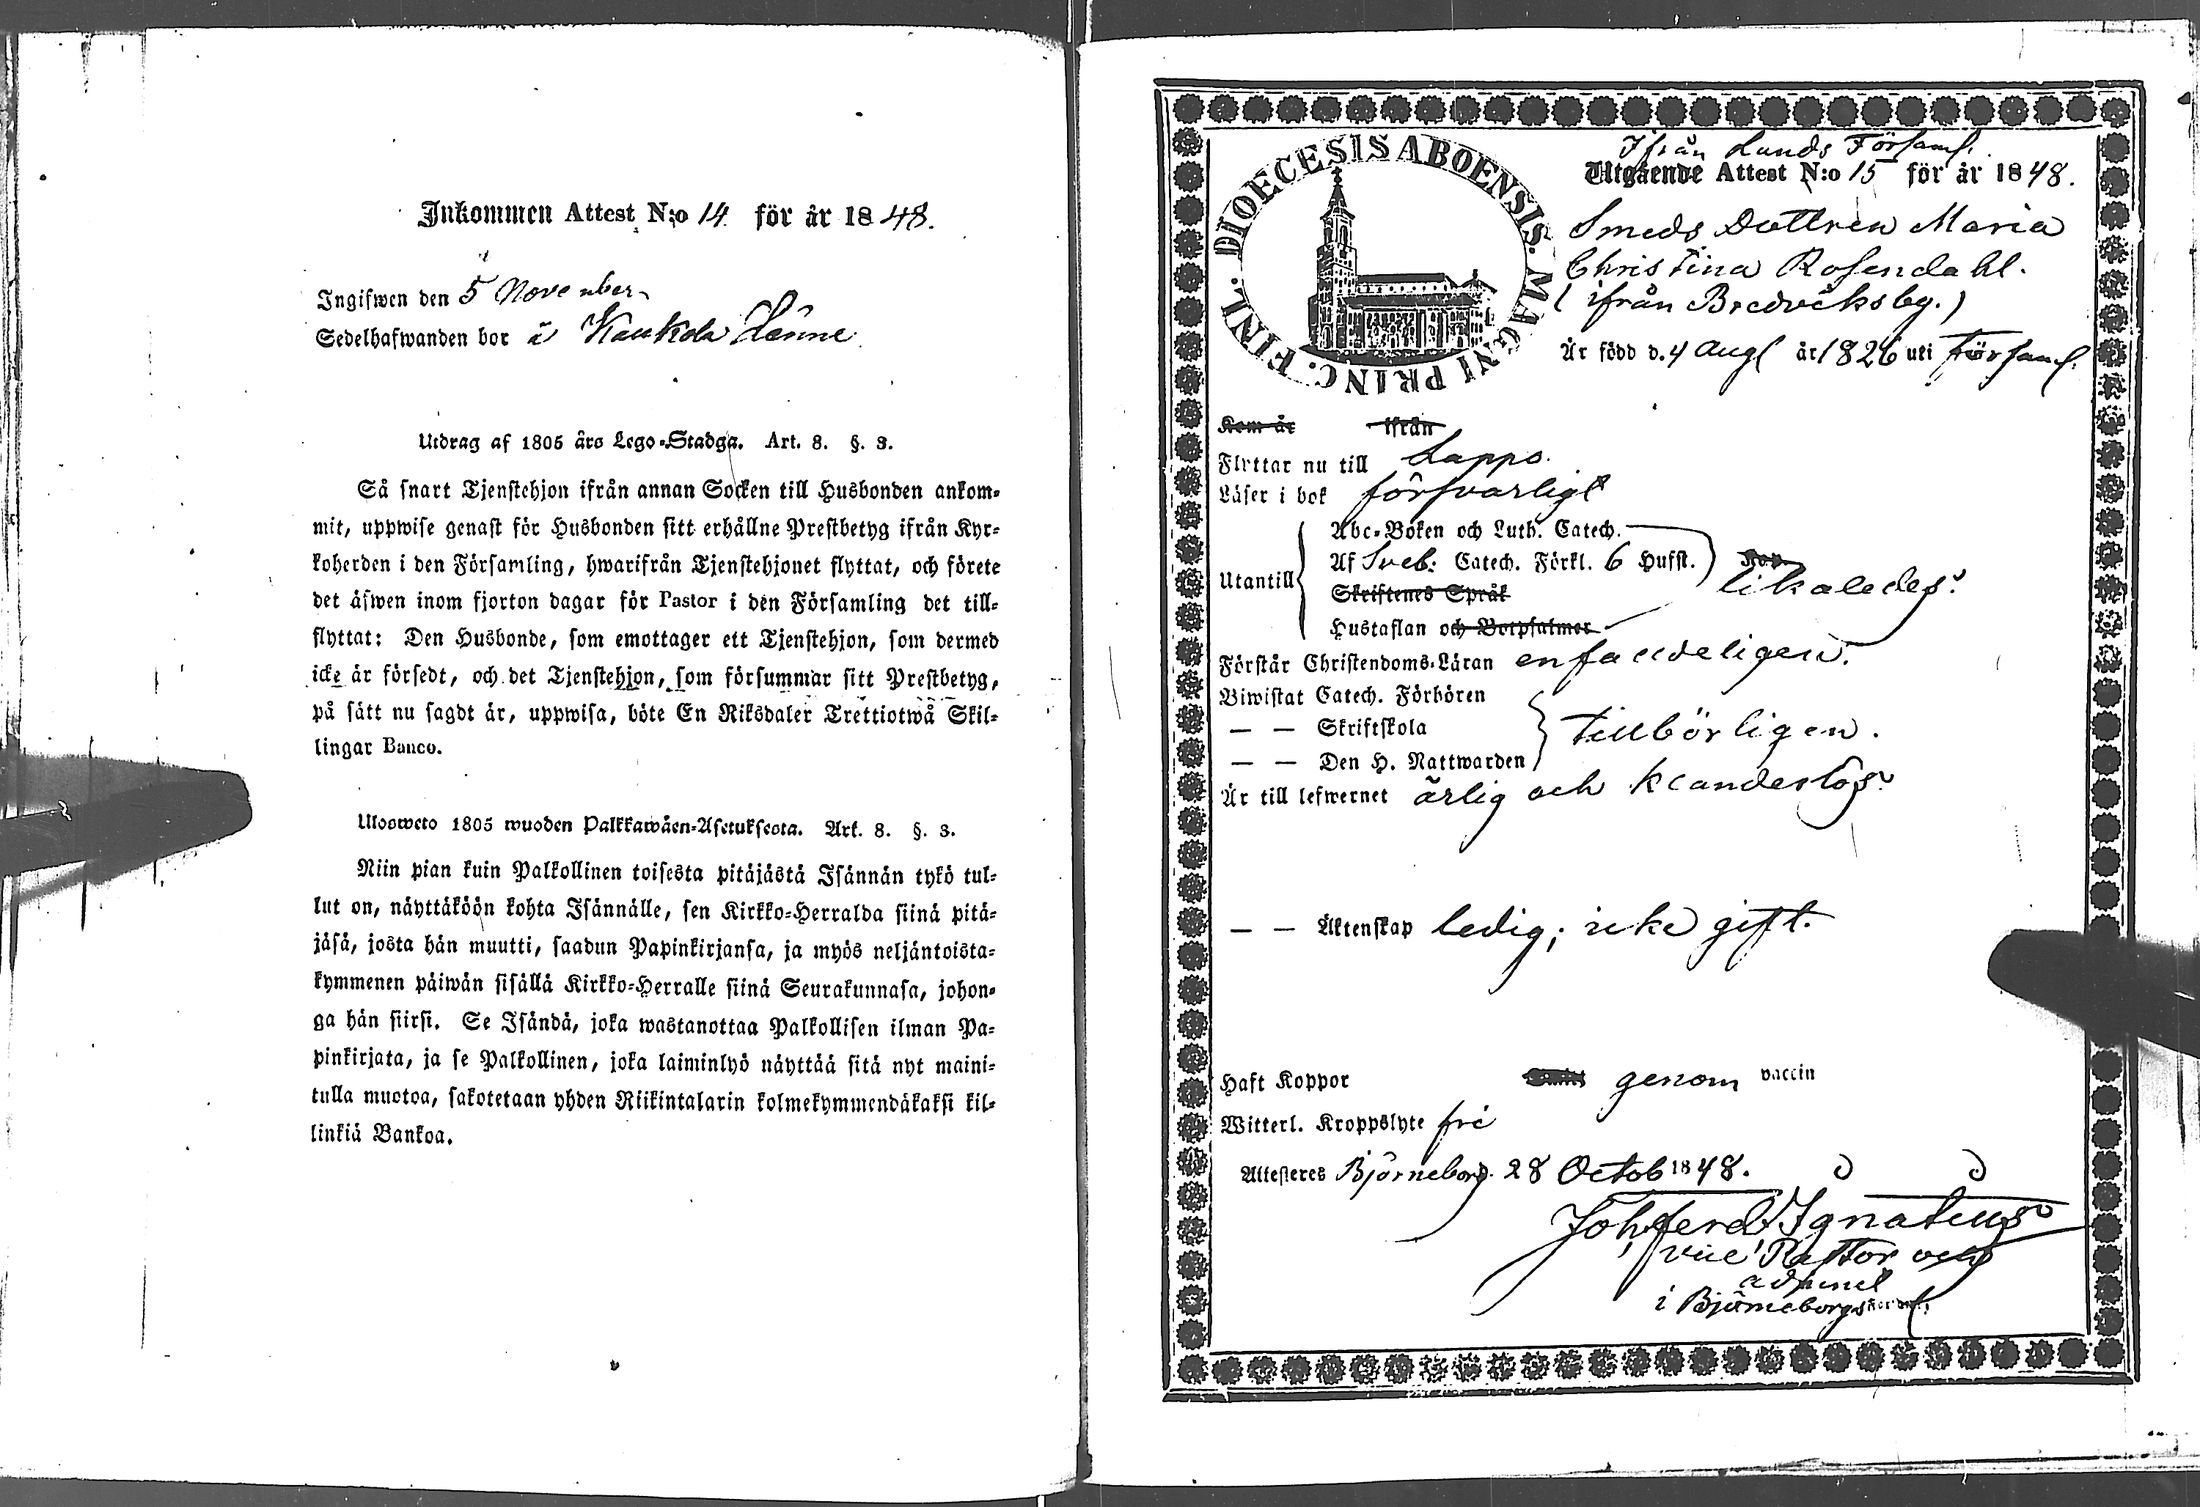 Inkommen Attest N:o 14 för år 1848.
Ingifwen den 5 November
Sedelhafwanden bor å Kaukola Hänne
Utdrag af 1805 års Lego-Stadga. Art. 8. §. 3.
Så snart Tjenstehjon ifrån annan Socken till Husbonden ankom-
mit, uppwise genast för Husbonden sitt erhållne Prestbetyg ifrån Kyr-
koherden i den Församling, hwarifrån Tjenstehjonet flyttat, och förete
det äfwen inom fjorton dagar för Pastor i den Församling det till-
flyttat: Den Husbonde, som emottager ett Tjenstehjon, som dermed
icke är försedt, och det Tjenstehjon, som försummar sitt Prestbetyg,
på sätt nu sagdt är, uppwisa, böte En Riksdaler Trettiotwå Skil-
lingar Banco.
Ulosweto 1805 wuoden Palkkawäen-Asetuksesta. Art. 8. §. 3.
Niin pian kuin Palkollinen toisesta pitäjästä Isännän tykö tul-
lut on, näyttäköön kohta Isännälle, sen Kirkko-Herralda siinä pitä-
jäsä, josta hän muutti, saadun Papinkirjansa, ja myös neljäntoista-
kymmenen päiwän sisällä Kirkko-Herralle siinä Seurakunnasa, johon-
ga hän siirsi. Se Isändä, joka wastanottaa Palkollisen ilman Pa-
pinkirjata, ja se Palkollinen, joka laiminlyö näyttää sitä nyt maini-
tulla muotoa, sakotetaan yhden Riikintalarin kolmekymmendäkaksi kil-
linkiä Bankoa.
DIOECESIS ABOENSIS. MAGNI PRINC. FINL.
Ifrån Lands Församl.
Utgående Attest N:o 15 för år 1848.
Smeds Dottren Maria
Christina Rosendahl.
(ifrån Bredviksby.)
Är född d. 4 Aug år 1826 uti Församl.
Kom år ifrån
Flyttar nu till Lappo.
Läser i bok försvarligt
Utantill
Abc-Boken och Luth. Catech.
Af Sveb: Catech. Förkl. 6 Hufst.
likaledes.
Skriftenes Språk
Hustaflan och Botpsalmer
Förstår Christendoms-Läran enfaldeligen.
Biwistat Catech. Förhören
— — Skriftskola
tillbörligen.
— — Den H. Nattwarden
Är till lefwernet ärlig och klanderlös.
— — Äktenskap ledig; icke gift.
Haft Koppor genom vaccin
Witterl. Kroppslyte fri
Attesteres Björneborg. 28 Octob 1848.
Joh, Ferd. Ignatius
vice Pastor och
i Björneborgs